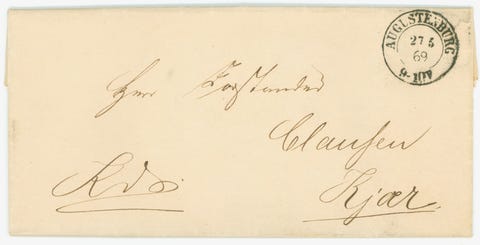 AUGUSTENBURG
27 5
69
9-10V
Herr Vorstander
Clausen
Kjær.
R. d. S.